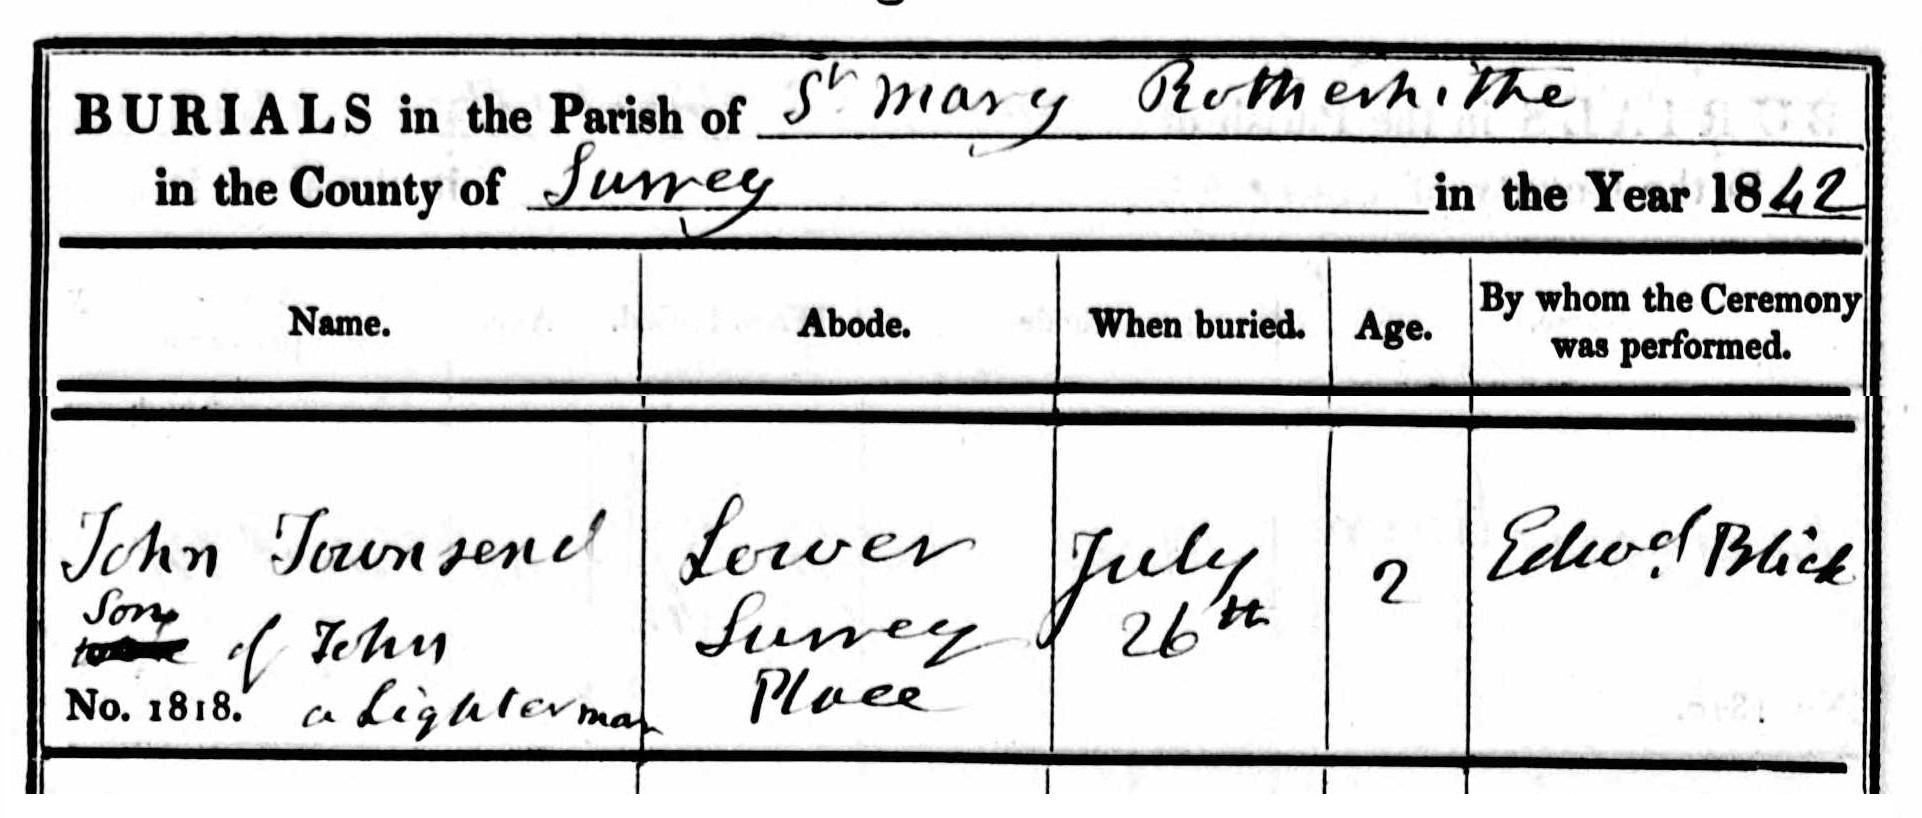 BURIALS in the Parish of St Mary Rotherhithe
in the County of Surrey in the Year 1842
Name. Abode. When buried. Age. By whom the Ceremony was performed.
John Townsend Lower July 2 Edwd Blick
Son of John Surrey 26th
No. 1818. a Lighterman Place